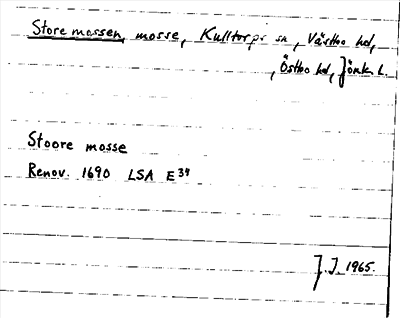 Store mossen, mosse, Kulltorps sn, Västbo hd,
, Östbo hd, Jönk. L.
Stoore mosse
Renov. 1690 LSA E 34
J. J. 1965.